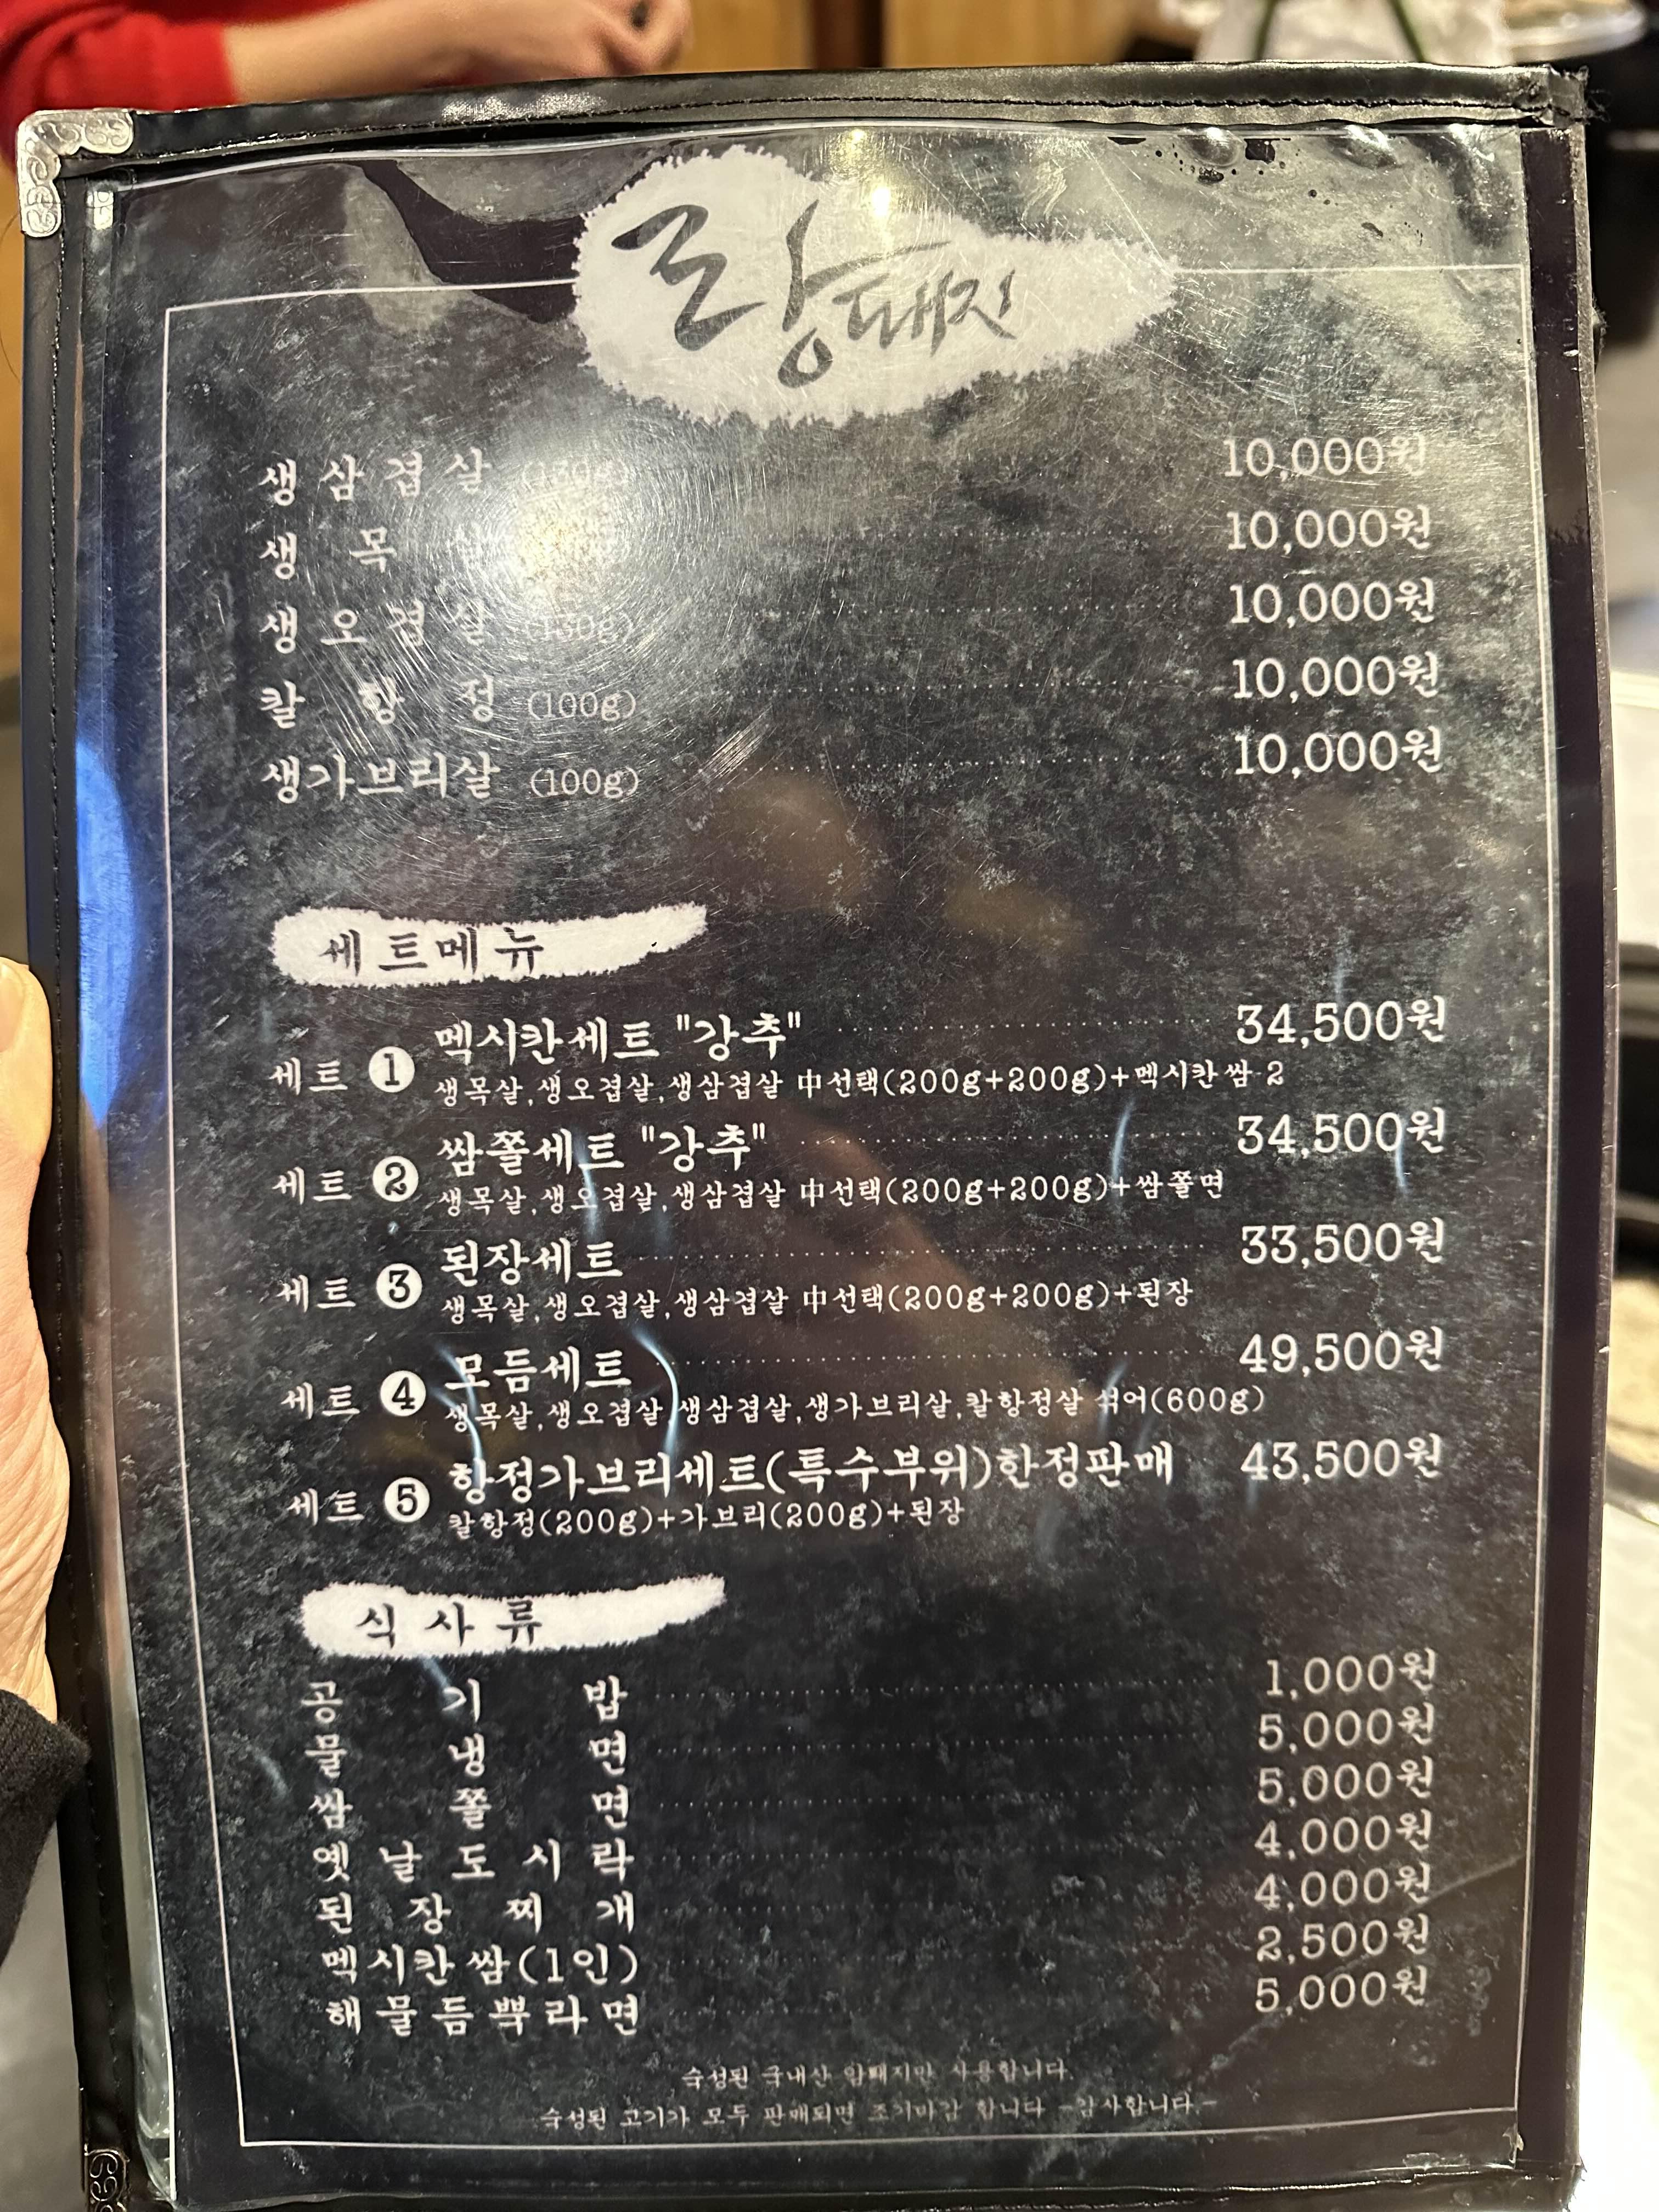 랑돼지
생삼겹살 (130g) 10,000원
생목살 10,000원
생오겹살 (130g) 10,000원
칼항정 (100g) 10,000원
생가브리살 (100g) 10,000원
세트메뉴
세트 1 멕시칸세트 "강추" 34,500원
생목살,생오겹살,생삼겹살 中선택(200g+200g)+멕시칸 쌈 2
세트 2 쌈쫄세트 "강추" 34,500원
생목살,생오겹살,생삼겹살 中선택(200g+200g)+쌈쫄면
세트 3 된장세트 33,500원
생목살,생오겹살,생삼겹살 中선택(200g+200g)+된장
세트 4 모듬세트 49,500원
생목살,생오겹살,생삼겹살,생가브리살,칼항정살 섞어(600g)
세트 5 항정가브리세트(특수부위)한정판매 43,500원
칼항정(200g)+가브리(200g)+된장
식사류
공기밥 1,000원
물냉면 5,000원
쌈쫄면 5,000원
옛날도시락 4,000원
된장찌개 4,000원
멕시칸 쌈(1인) 2,500원
해물듬뿍라면 5,000원
숙성된 국내산 암퇘지만 사용합니다.
숙성된 고기가 모두 판매되면 조기마감 합니다 -감사합니다.-